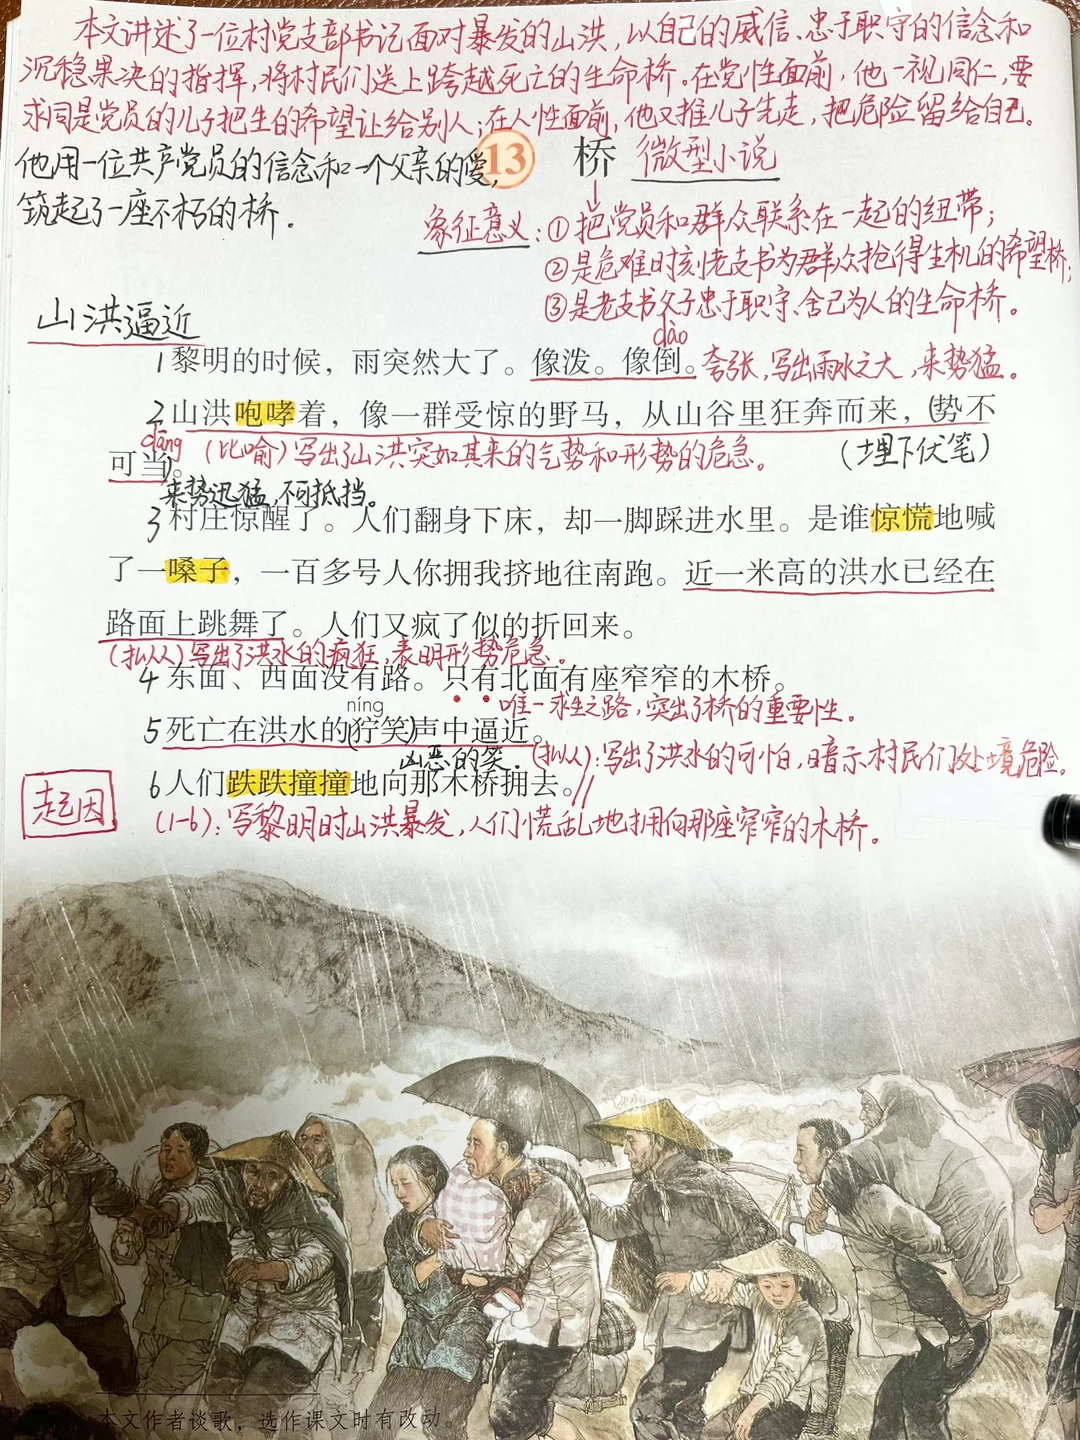 本文讲述了一位村党支部书记面对暴发的山洪，以自己的威信、忠于职守的信念和
沉稳果决的指挥，将村民们送上跨越死亡的生命桥。在党性面前，他一视同仁，要
求同是党员的儿子把生的希望让给别人；在人性面前，他又推儿子先走，把危险留给自己。
他用一位共产党员的信念和一个父亲的爱，
筑起了一座不朽的桥。
13 桥 微型小说
象征意义：①把党员和群众联系在一起的纽带；
②是危难时刻老支书为群众抢得生机的希望桥；
③是老支书父子忠于职守、舍己为人的生命桥。
山洪逼近
dào
1 黎明的时候，雨突然大了。像泼。像倒。夸张，写出雨水之大，来势猛。
2 山洪咆哮着，像一群受惊的野马，从山谷里狂奔而来，(势不
dāng
可当)。(比喻)写出了山洪突如其来的气势和形势的危急。(埋下伏笔)
来势迅猛，不可抵挡。
3 村庄惊醒了。人们翻身下床，却一脚踩进水里。是谁惊慌地喊
了一嗓子，一百多号人你拥我挤地往南跑。近一米高的洪水已经在
路面上跳舞了。人们又疯了似的折回来。
(拟人)写出了洪水的疯狂，表明形势危急。
4 东面、西面没有路。只有北面有座窄窄的木桥。
唯一求生之路，突出了桥的重要性。
níng
5 死亡在洪水的(狞笑)声中逼近。
凶恶的笑。(拟人)：写出了洪水的可怕，暗示村民们处境危险。
6 人们跌跌撞撞地向那木桥拥去。//
起因
(1-6)：写黎明时山洪暴发，人们慌乱地拥向那座窄窄的木桥。
本文作者谈歌，选作课文时有改动。